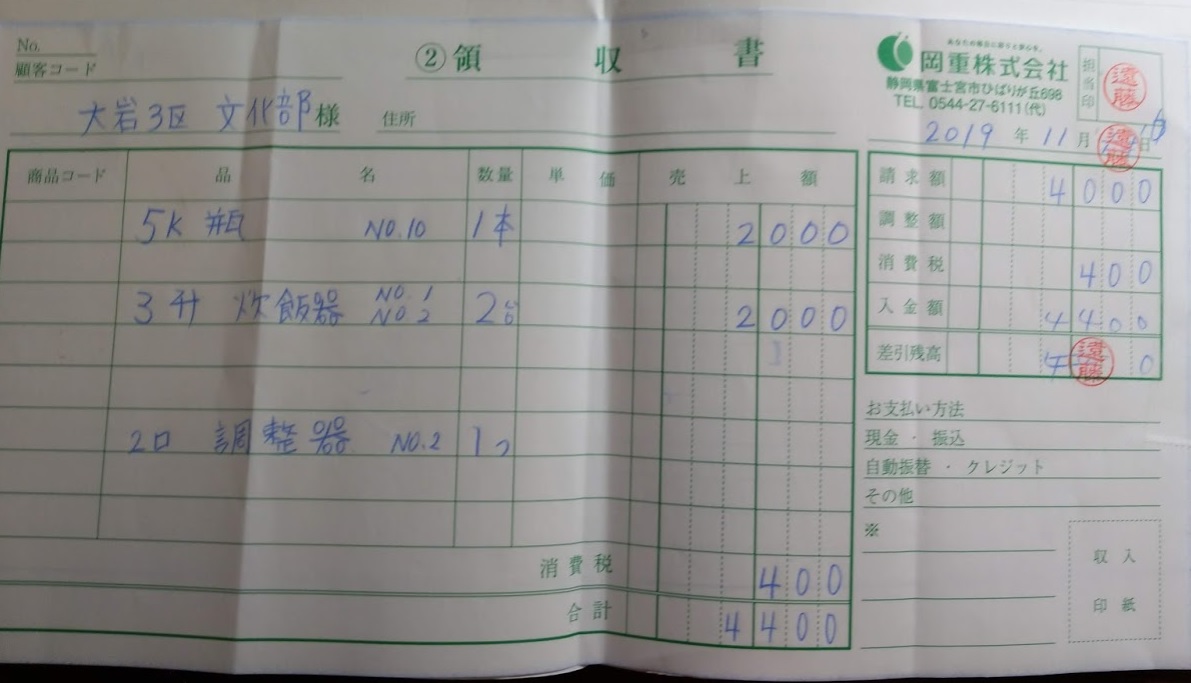 No.
顧客コード
②領収書
あなたの毎日に彩りと安心を。
岡重株式会社
静岡県富士宮市ひばりが丘698
TEL. 0544-27-6111(代)
担当印
遠藤
大岩3区 文化部様 住所
2019年11月日
遠藤
商品コード 品名 数量 単価 売上額
5K 瓶 NO.10 1本 2000
3升 炊飯器 NO.1 NO.2 2台 2000
2口 調整器 NO.2 1つ
消費税 400
合計 4400
請求額 4000
調整額
消費税 400
入金額 4400
差引残高 0
遠藤
お支払い方法
現金・振込
自動振替・クレジット
その他
※
収入
印紙